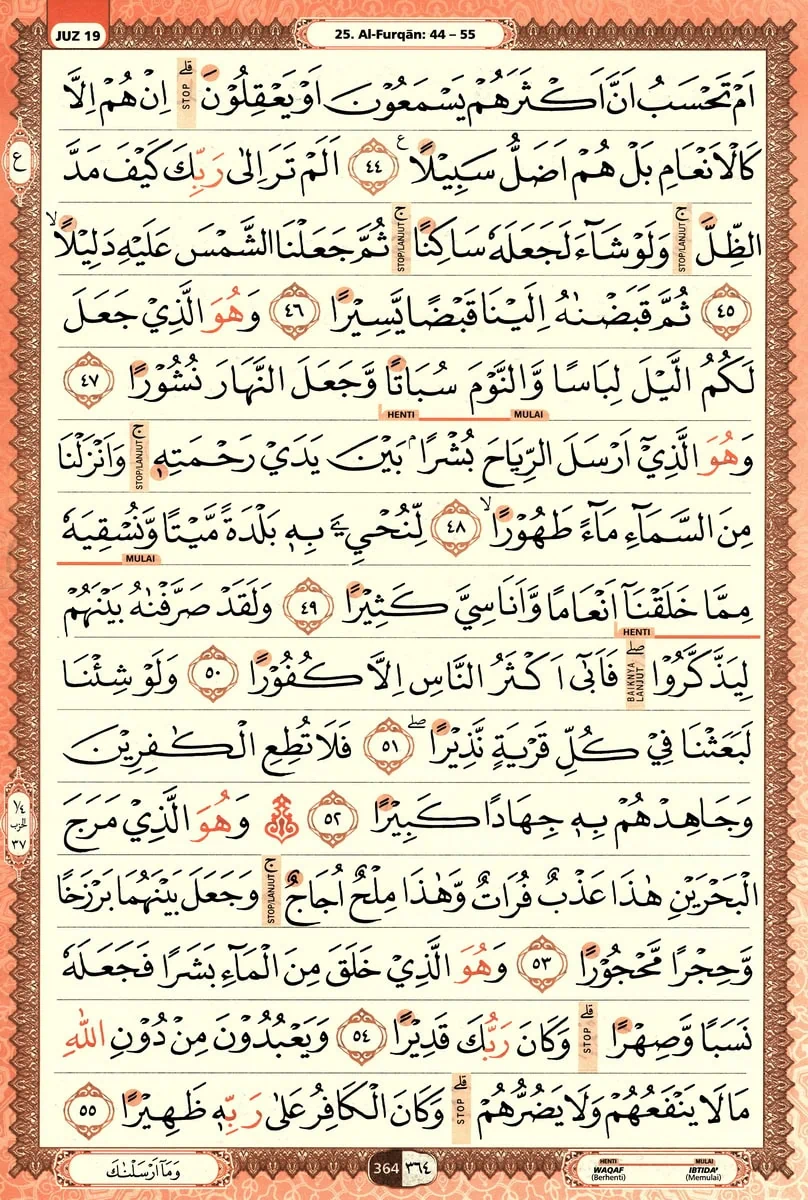 JUZ 19
25. Al-Furqān: 44 – 55
اَمْ تَحْسَبُ اَنَّ اَكْثَرَهُمْ يَسْمَعُوْنَ اَوْ يَعْقِلُوْنَ ۗ STOP اِنْ هُمْ اِلَّا
كَالْاَنْعَامِ بَلْ هُمْ اَضَلُّ سَبِيْلًا ࣖ ٤٤ اَلَمْ تَرَ اِلٰى رَبِّكَ كَيْفَ مَدَّ
ع
الظِّلَّ ۚ STOP/LANJUT وَلَوْ شَاۤءَ لَجَعَلَهٗ سَاكِنًا ۚ STOP/LANJUT ثُمَّ جَعَلْنَا الشَّمْسَ عَلَيْهِ دَلِيْلًا ۙ
٤٥ ثُمَّ قَبَضْنٰهُ اِلَيْنَا قَبْضًا يَّسِيْرًا ٤٦ وَهُوَ الَّذِيْ جَعَلَ
لَكُمُ الَّيْلَ لِبَاسًا وَّالنَّوْمَ سُبَاتًا وَّجَعَلَ النَّهَارَ نُشُوْرًا ٤٧
HENTI MULAI
وَهُوَ الَّذِيْٓ اَرْسَلَ الرِّيٰحَ بُشْرًا ۢ بَيْنَ يَدَيْ رَحْمَتِهٖ ۚ STOP/LANJUT وَاَنْزَلْنَا
مِنَ السَّمَاۤءِ مَاۤءً طَهُوْرًا ۙ ٤٨ لِّنُحْيِ َۧ بِهٖ بَلْدَةً مَّيْتًا وَّنُسْقِيَهٗ
MULAI
مِمَّا خَلَقْنَآ اَنْعَامًا وَّاَنَاسِيَّ كَثِيْرًا ٤٩ وَلَقَدْ صَرَّفْنٰهُ بَيْنَهُمْ
HENTI
لِيَذَّكَّرُوْا ۖ BAIKNYA LANJUT فَاَبٰىٓ اَكْثَرُ النَّاسِ اِلَّا كُفُوْرًا ٥٠ وَلَوْ شِئْنَا
لَبَعَثْنَا فِيْ كُلِّ قَرْيَةٍ نَّذِيْرًا ۖ ٥١ فَلَا تُطِعِ الْكٰفِرِيْنَ
وَجَاهِدْهُمْ بِهٖ جِهَادًا كَبِيْرًا ٥٢ ۞ وَهُوَ الَّذِيْ مَرَجَ
١/٤
الحزب
٣٧
الْبَحْرَيْنِ هٰذَا عَذْبٌ فُرَاتٌ وَّهٰذَا مِلْحٌ اُجَاجٌ ۚ STOP/LANJUT وَجَعَلَ بَيْنَهُمَا بَرْزَخًا
وَّحِجْرًا مَّحْجُوْرًا ٥٣ وَهُوَ الَّذِيْ خَلَقَ مِنَ الْمَاۤءِ بَشَرًا فَجَعَلَهٗ
نَسَبًا وَّصِهْرًا ۗ STOP وَكَانَ رَبُّكَ قَدِيْرًا ٥٤ وَيَعْبُدُوْنَ مِنْ دُوْنِ اللّٰهِ
مَا لَا يَنْفَعُهُمْ وَلَا يَضُرُّهُمْ ۗ STOP وَكَانَ الْكَافِرُ عَلٰى رَبِّهٖ ظَهِيْرًا ٥٥
وَمَآ اَرْسَلْنٰكَ
364 ٣٦٤
HENTI MULAI
WAQAF IBTIDA'
(Berhenti) (Memulai)